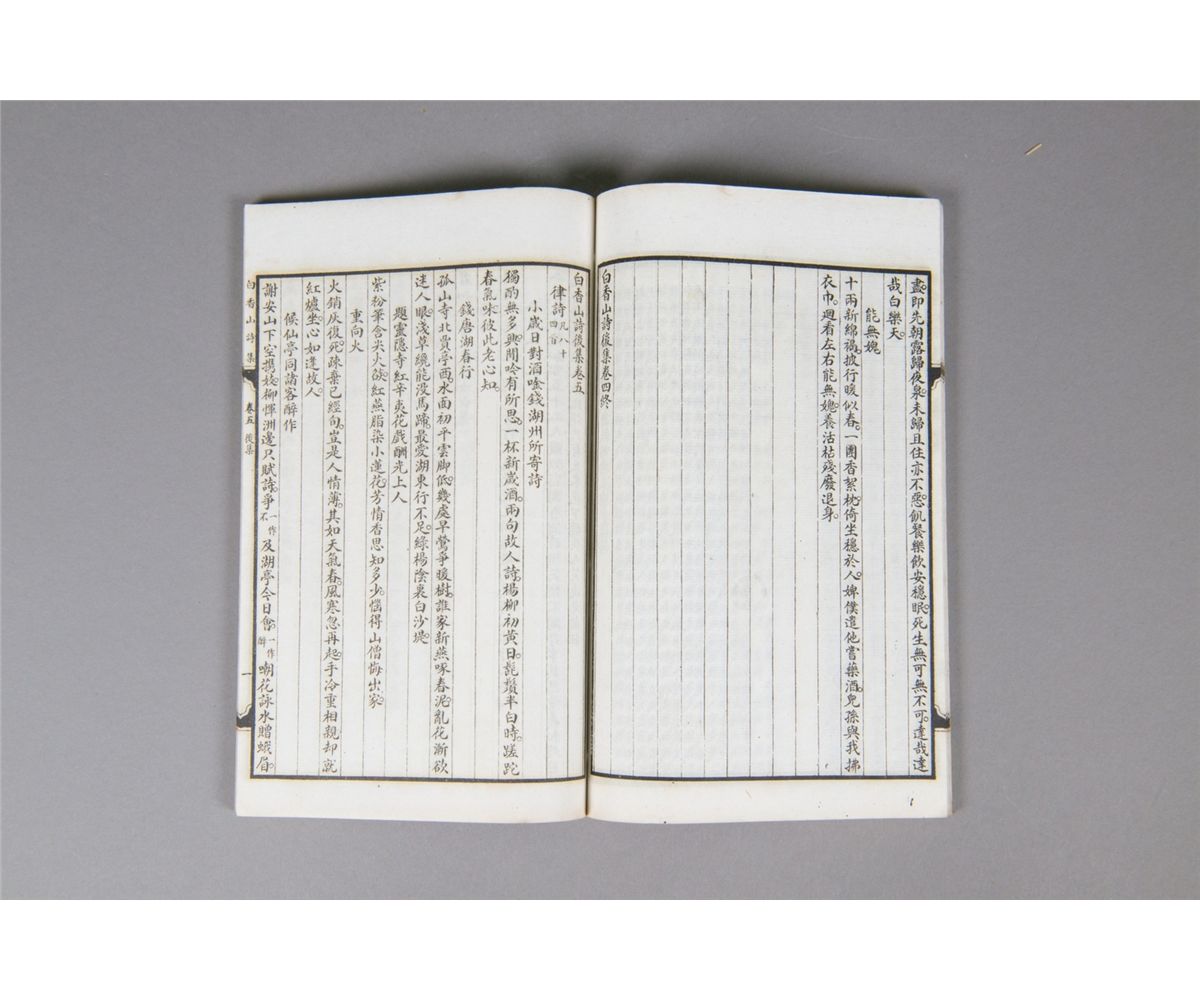 盡即先朝露歸夜泉未歸且住亦不惡飢餐樂飲安穩眠死生無可無不可達哉達
哉白樂天
能無媿
十兩新綿褐披行暖似春一團香絮枕倚坐穩於人婢僕遣他嘗藥酒兒孫與我拂
衣巾迴看左右能無媿養活枯殘廢退身
白香山詩後集卷四終
白香山詩後集卷五
律詩 凡八十四首
小歲日對酒唫錢湖州所寄詩
獨酌無多興閒唫有所思一杯新歲酒兩句故人詩楊柳初黃日髭鬚半白時蹉跎
春氣味彼此老心知
錢唐湖春行
孤山寺北賈亭西水面初平雲腳低幾處早鶯爭暖樹誰家新燕啄春泥亂花漸欲
迷人眼淺草纔能沒馬蹄最愛湖東行不足綠楊陰裏白沙堤
題靈隱寺紅辛夷花戲酬光上人
紫粉筆含尖火燄紅燕脂染小蓮花芳情香思知多少惱得山僧悔出家
重向火
火銷灰復死疎棄已經旬豈是人情薄其如天氣春風寒忽再起手冷重相親却就
紅爐坐心如逢故人
候仙亭同諸客醉作
謝安山下空攜妓柳惲洲邊只賦詩爭一作不及湖亭今日會一作醉嘲花詠水贈蛾眉
白香山詩集 卷五 後集 一